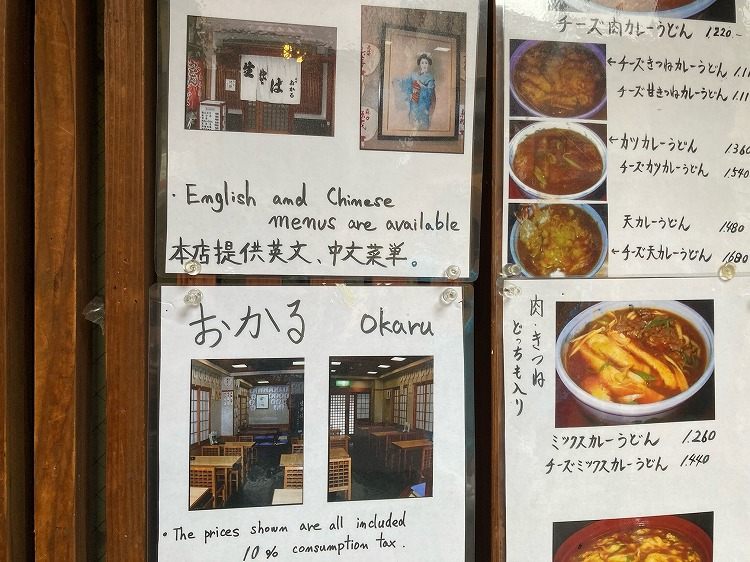 生そば
おかる
・English and Chinese
menus are available
本店提供英文、中文菜単。
おかる Okaru
・The prices shown are all included
10% consumption tax.
チーズ肉カレーうどん 1220
←チーズきつねカレーうどん 1.11
チーズ甘きつねカレーうどん 1.11
←カツカレーうどん 1.360
チーズカツカレーうどん 1.540
天カレーうどん 1.480
←チーズ天カレーうどん 1.680
肉・きつね
どっちも入り
ミックスカレーうどん 1.260
チーズ・ミックスカレーうどん 1.440